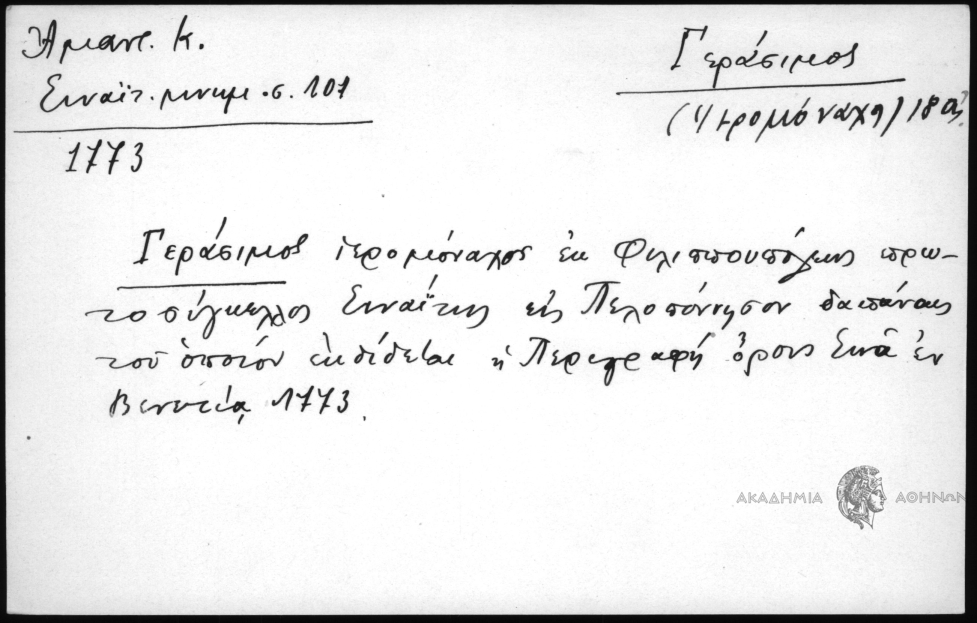 Ἄμαντ. Κ.
Σιναϊτ. μνημ. σ. 101
1773
Γεράσιμος
(Ἱερομόναχος) 18 αἰ.
Γεράσιμος ἱερομόναχος ἐκ Φιλιππουπόλεως πρω-
τοσύγκελλος Σιναΐτης εἰς Πελοπόννησον δαπάναις
τοῦ ὁποίου ἐκδίδεται ἡ Περιγραφή ὄρους Σινᾶ ἐν
Βενετίᾳ 1773.
ΑΚΑΔΗΜΙΑ ΑΘΗΝΩΝ